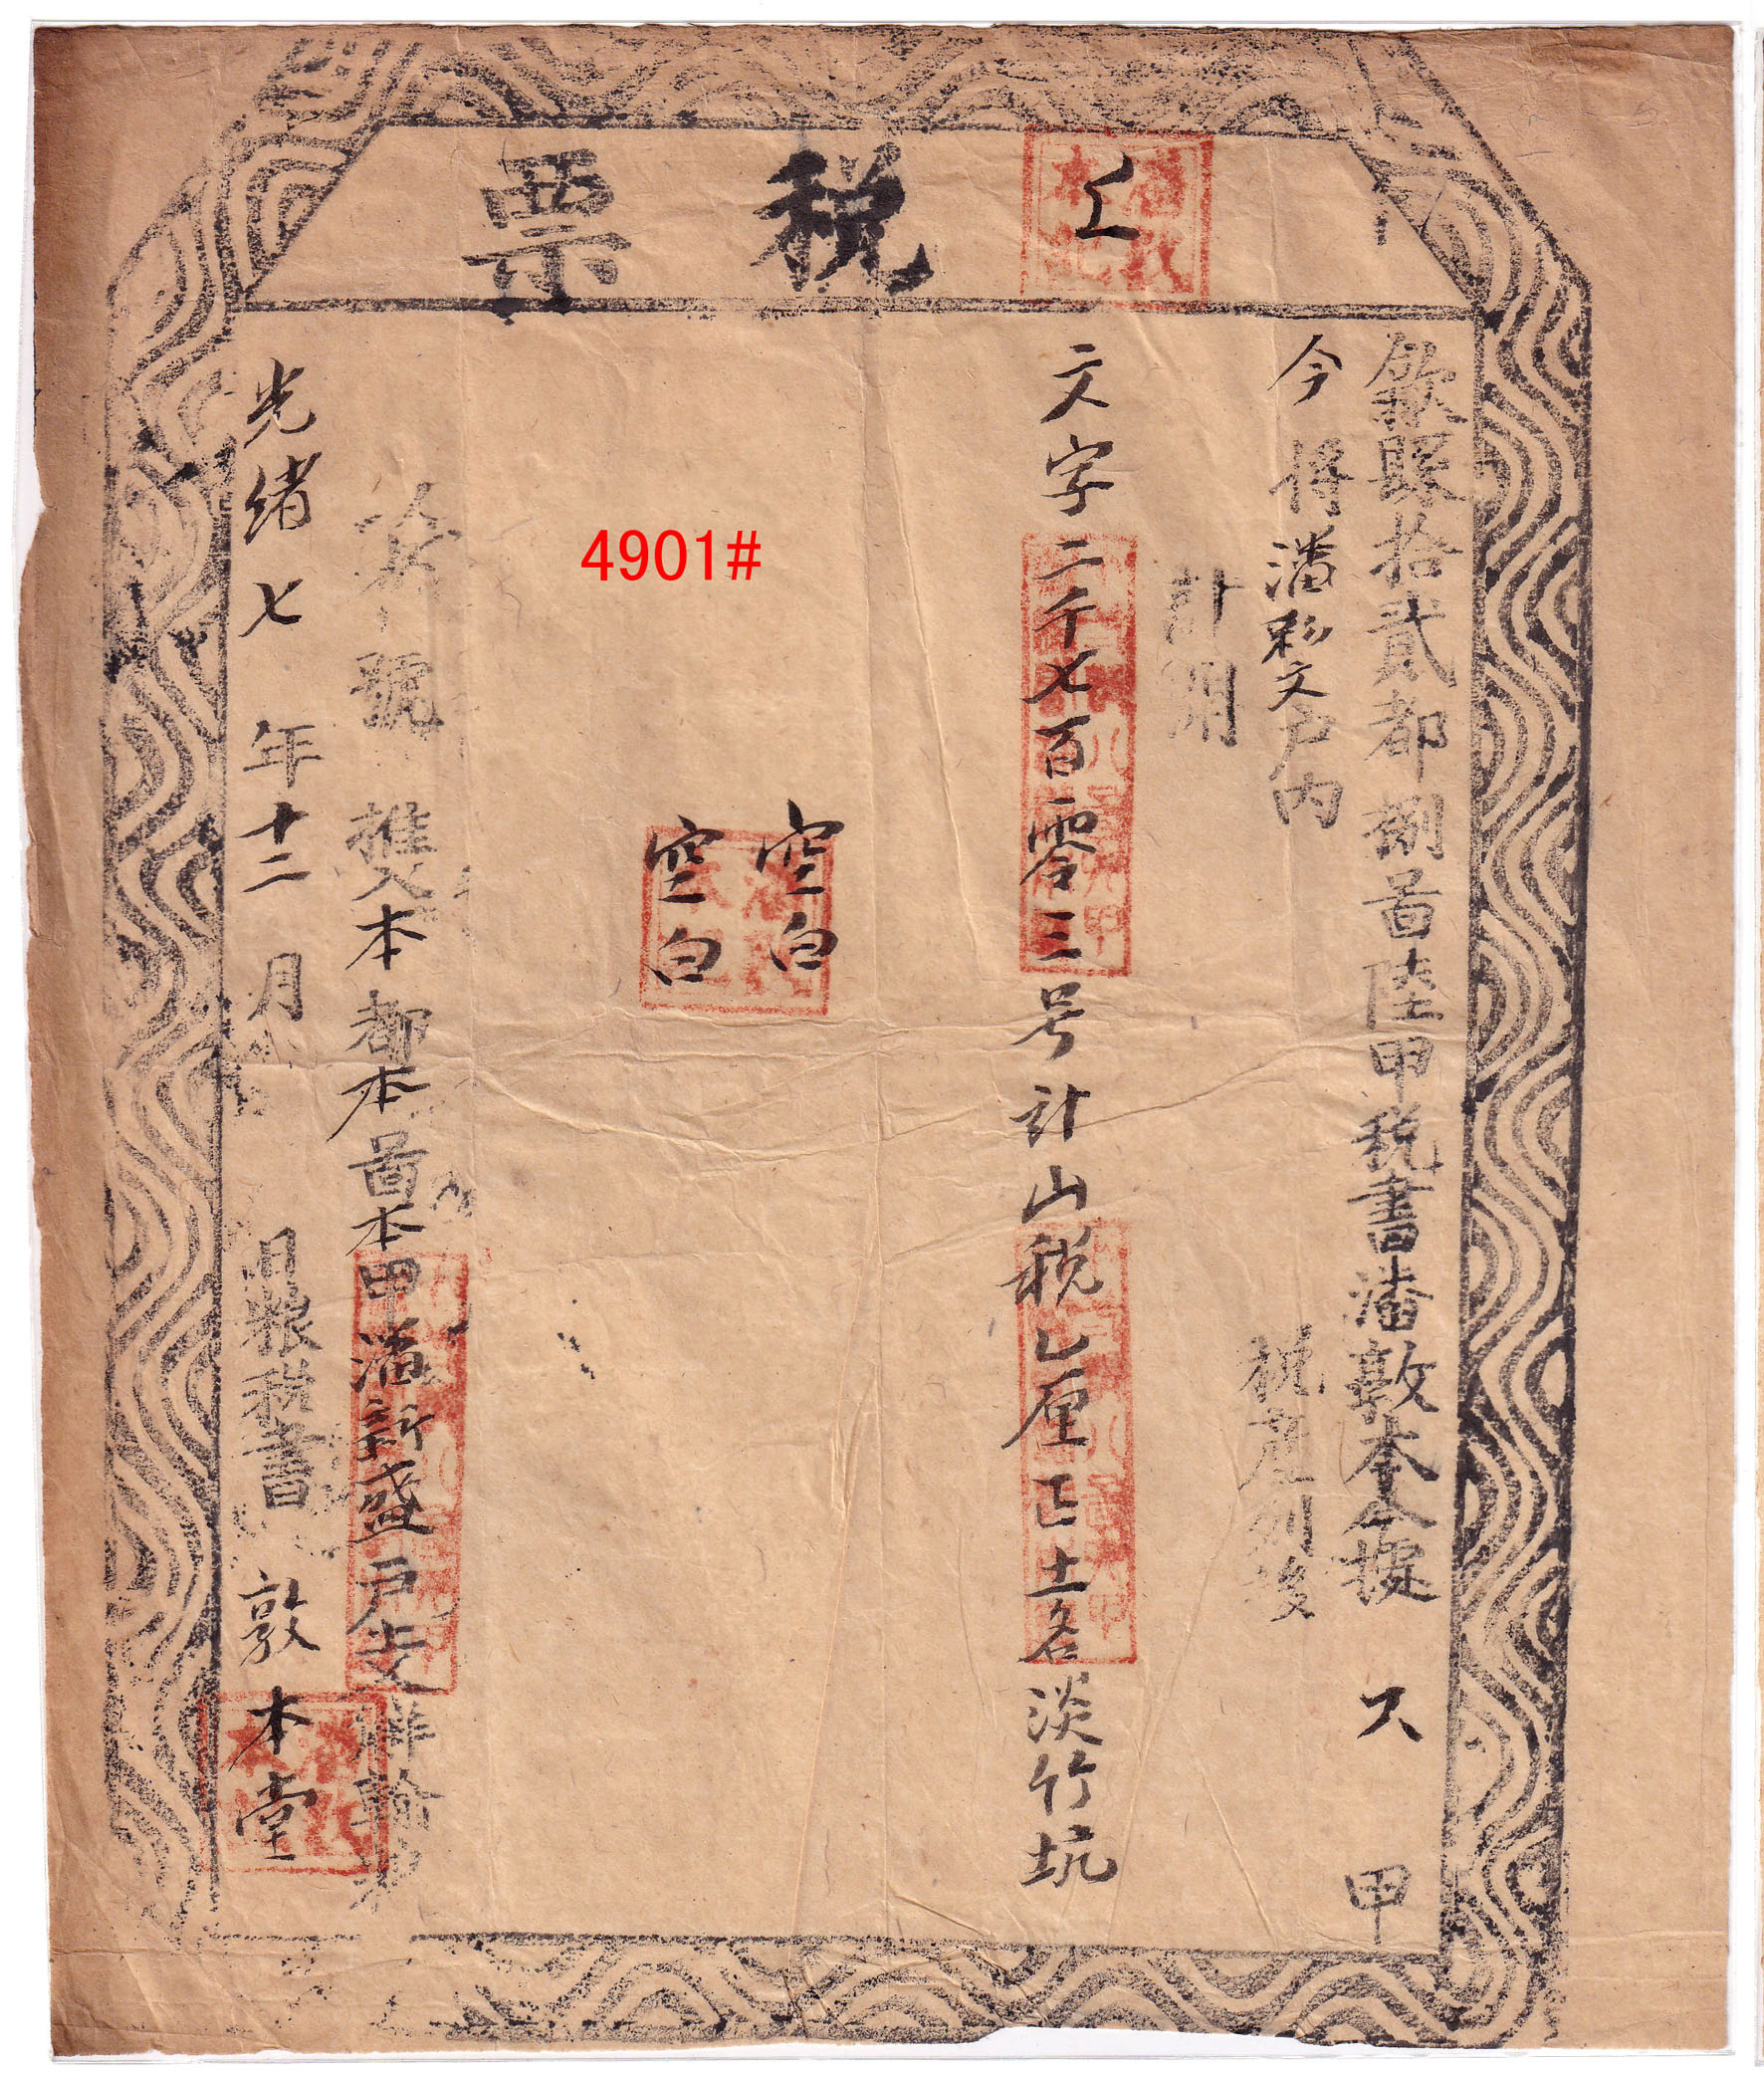 上税票
歙縣拾貳都捌啚陸甲税書潘敦本仝㨗 又 甲
今將潘彩文户内 税産列後
計開
文字二千七百零三号計山税乚厘正土名淡竹坑
空白
空白
4901#
號推入本都本啚本甲潘新盛户支觧輸
光緒七年十二月 日粮税書 敦本堂